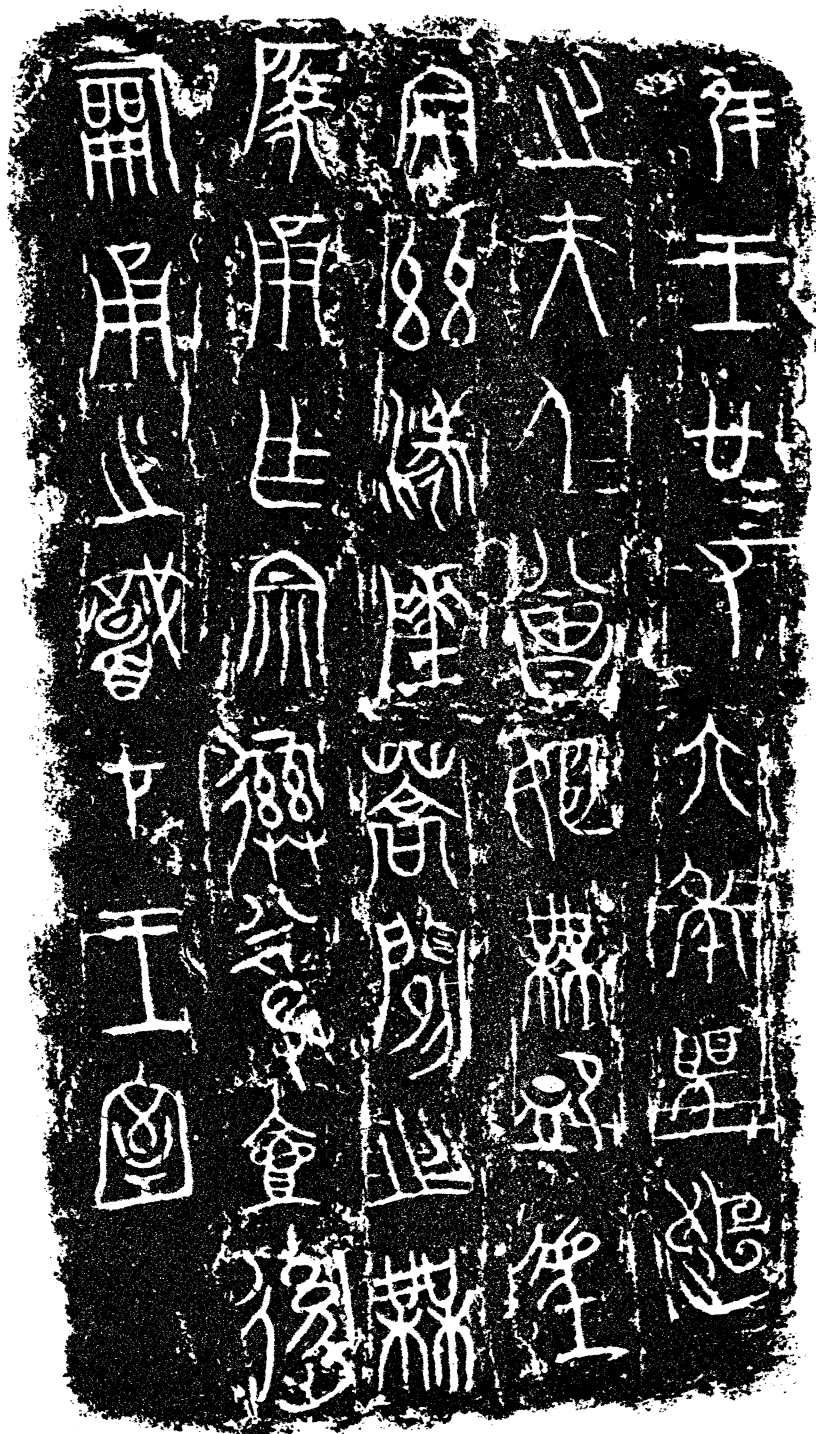 隹王廿又六年聖趄
之夫人曾姬無卹望
安茲漾陲蒿閒之無
匹甬乍宗彝尊壺後
嗣甬之職才王室